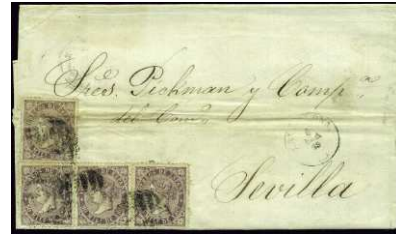 Sres. Pickman y Compª
del Com°
Sevilla